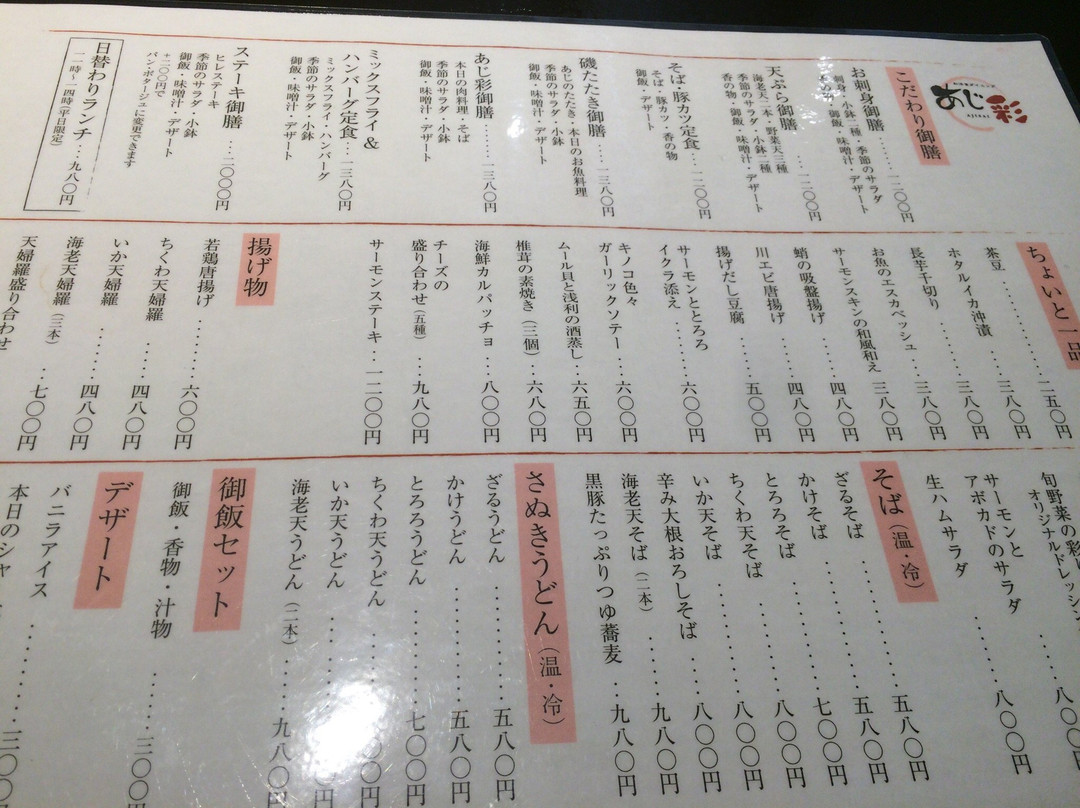 あじ彩
AJISAI
こだわり御膳
お刺身御膳……一二〇〇円
刺身・小鉢二種・季節のサラダ
御飯・味噌汁・デザート
天ぷら御膳……一二〇〇円
海老天二本・野菜天三種
季節のサラダ・小鉢二種
香の物・御飯・味噌汁・デザート
そば・豚カツ定食……一二〇〇円
そば・豚カツ・香の物
磯たたき御膳……一三八〇円
あじのたたき・本日のお魚料理
季節のサラダ・小鉢
御飯・味噌汁・デザート
あじ彩御膳……一三八〇円
本日の肉料理・そば
季節のサラダ・小鉢
御飯・味噌汁・デザート
ミックスフライ＆
ハンバーグ定食…一三八〇円
ミックスフライ・ハンバーグ
季節のサラダ・小鉢
御飯・味噌汁・デザート
ステーキ御膳……二〇〇〇円
ヒレステーキ
季節のサラダ・小鉢
御飯・味噌汁・デザート
+二〇〇円で
パン・ポタージュに変更できます
日替わりランチ…九八〇円
一一時〜一四時（平日限定）
ちょいと一品
茶豆……二五〇円
ホタルイカ沖漬……三八〇円
長芋千切り……三八〇円
お魚のエスカベッシュ…三八〇円
サーモンスキンの和風和え 三八〇円
蛸の吸盤揚げ……四八〇円
川エビ唐揚げ……四八〇円
揚げだし豆腐……五〇〇円
サーモンととろろ
イクラ添え……六〇〇円
キノコ色々
ガーリックソテー…六〇〇円
ムール貝と浅利の酒蒸し…六五〇円
椎茸の素焼き（三個）…六八〇円
海鮮カルパッチョ…八〇〇円
チーズの
盛り合わせ（五種）…九八〇円
サーモンステーキ…一二〇〇円
揚げ物
若鶏唐揚げ……六〇〇円
ちくわ天婦羅……四八〇円
いか天婦羅……四八〇円
海老天婦羅（三本）……四八〇円
天婦羅盛り合わせ……七〇〇円
旬野菜の彩
オリジナルドレッシン
八〇〇
サーモンと
アボカドのサラダ……八〇〇円
生ハムサラダ……八〇〇円
そば（温・冷）
ざるそば……五八〇円
かけそば……五八〇円
とろろそば……七〇〇円
ちくわ天そば……八〇〇円
いか天そば……八〇〇円
辛み大根おろしそば……八〇〇円
海老天そば（二本）……九八〇円
黒豚たっぷりつゆ蕎麦…九八〇円
さぬきうどん（温・冷）
ざるうどん……五八〇円
かけうどん……五八〇円
とろろうどん……七〇〇円
ちくわ天うどん……八〇〇円
いか天うどん……八〇〇円
海老天うどん（二本）…九八〇円
御飯セット
御飯・香物・汁物……三〇〇円
デザート
バニラアイス……三〇〇円
本日のシャ